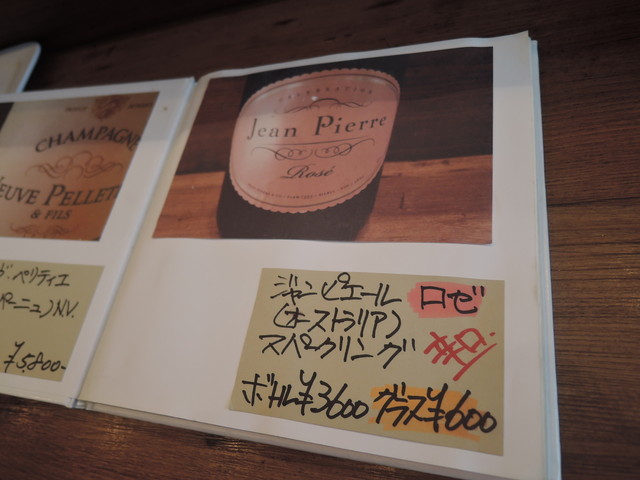 CHAMPAGNE
VEUVE PELLETI
& FILS
ペリティエ
N.V.
¥5,800-
CELEBRATION
Jean Pierre
Rosé
ジャンピエール ロゼ
(オーストラリア)
スパークリング
ボトル¥3600 グラス¥600